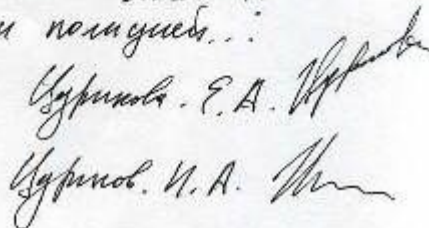 и полицией...
Цурикова. Е. А.
Цуриков. И. А.